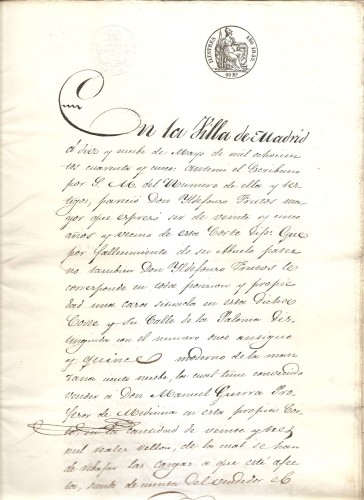 HISPANIA AÑO 1845
60 Rs
En la Villa de Madrid
á diez y nuebe de Mayo de mil ochocien
tos cuarenta y cinco: Antemi el Escribano
por S. M. del Numero de ella y tes-
tigos, pareció Don Ildefonso Frutos ma
yor que espresó ser de veinte y cinco
años y vecino de esta Corte Dijo: Que
por fallecimiento de su Abuelo pater
no tambien Don Ildefonso Frutos le
corresponde en posesion y propie
dad una casa situada en esta dicha
Corte y su Calle de la Paloma dis-
tinguida con el numero once antiguo
y quince moderno de la man
zana la cual tiene convenido
vender a Don Manuel Guerra Pro
fesor de Medicina en esta propia Cor
te en la cantidad de veinte y tres
mil reales vellon, de la cual se han
de rebajar las cargas a que esté afec
ta, siendo de cuenta del vendedor el